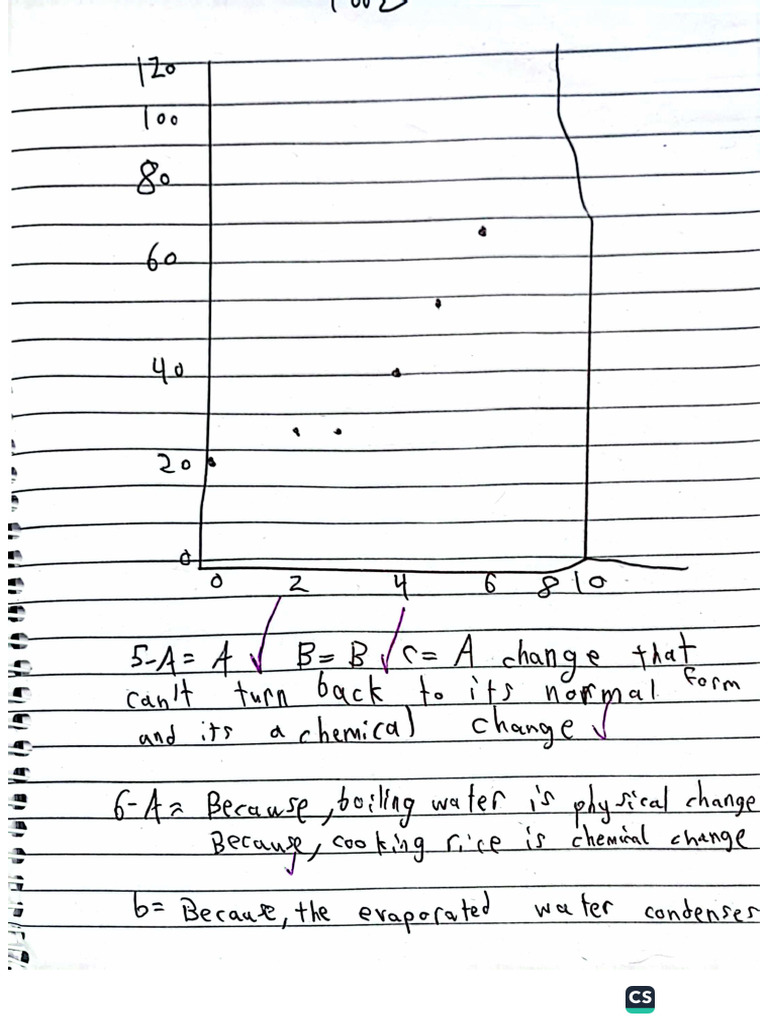 120
100
80
60
40
20
0
0 2 4 6 8 10
5-A = A B = B C = A change that
can't turn back to its normal form
and its a chemical change
6-A = Because, boiling water is physical change
Because, cooking rice is chemical change
b = Because, the evaporated water condenses
CS